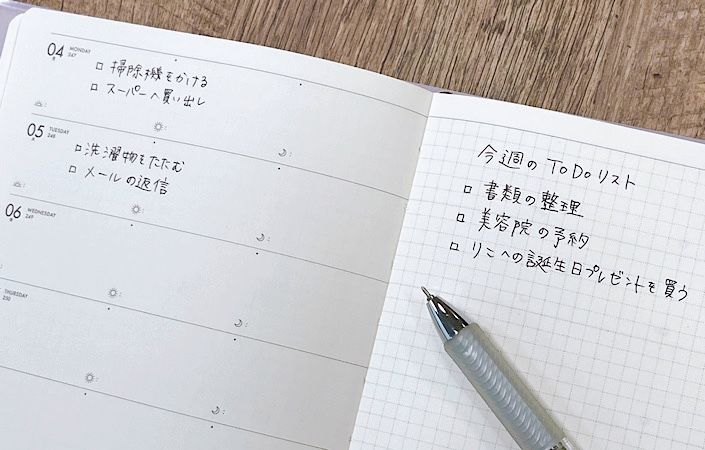 04 MONDAY
月 247
□ 掃除機をかける
□ スーパーへ買い出し
05 TUESDAY
火 248
□ 洗濯物をたたむ
□ メールの返信
06 WEDNESDAY
水 249
THURSDAY
250
今週のToDoリスト
□ 書類の整理
□ 美容院の予約
□ りこへの誕生日プレゼントを買う